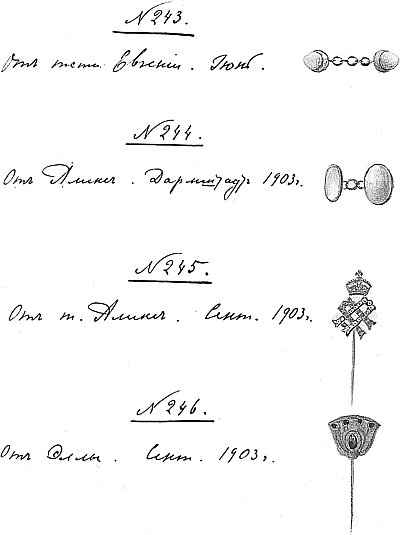 N 243.
Отъ тети Евгеніи. Іюнь.
N 244.
Отъ Аликсъ. Дармштадтъ 1903 г.
N 245.
Отъ т. Аликсъ. Сент. 1903 г.
N 246.
Отъ Эллы. Сент. 1903 г.